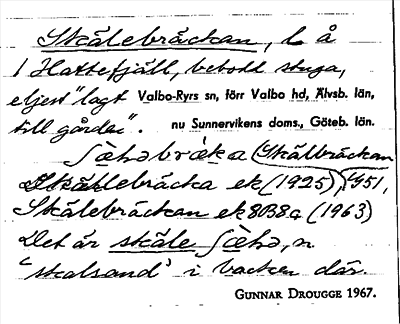 Skålebråckan, l. å
1 Hattefjäll, bebodd stuga,
eljest "lagt Valbo-Ryrs sn, förr Valbo hd, Älvsb. län,
till gårdar". nu Sunnervikens doms., Göteb. län.
(Skålbräckan
Skålebräcka ek (1925), 1951,
Skålebräckan ek 8B8a (1963)
Det är skåle n
'skalsand' i backen där.
GUNNAR DROUGGE 1967.